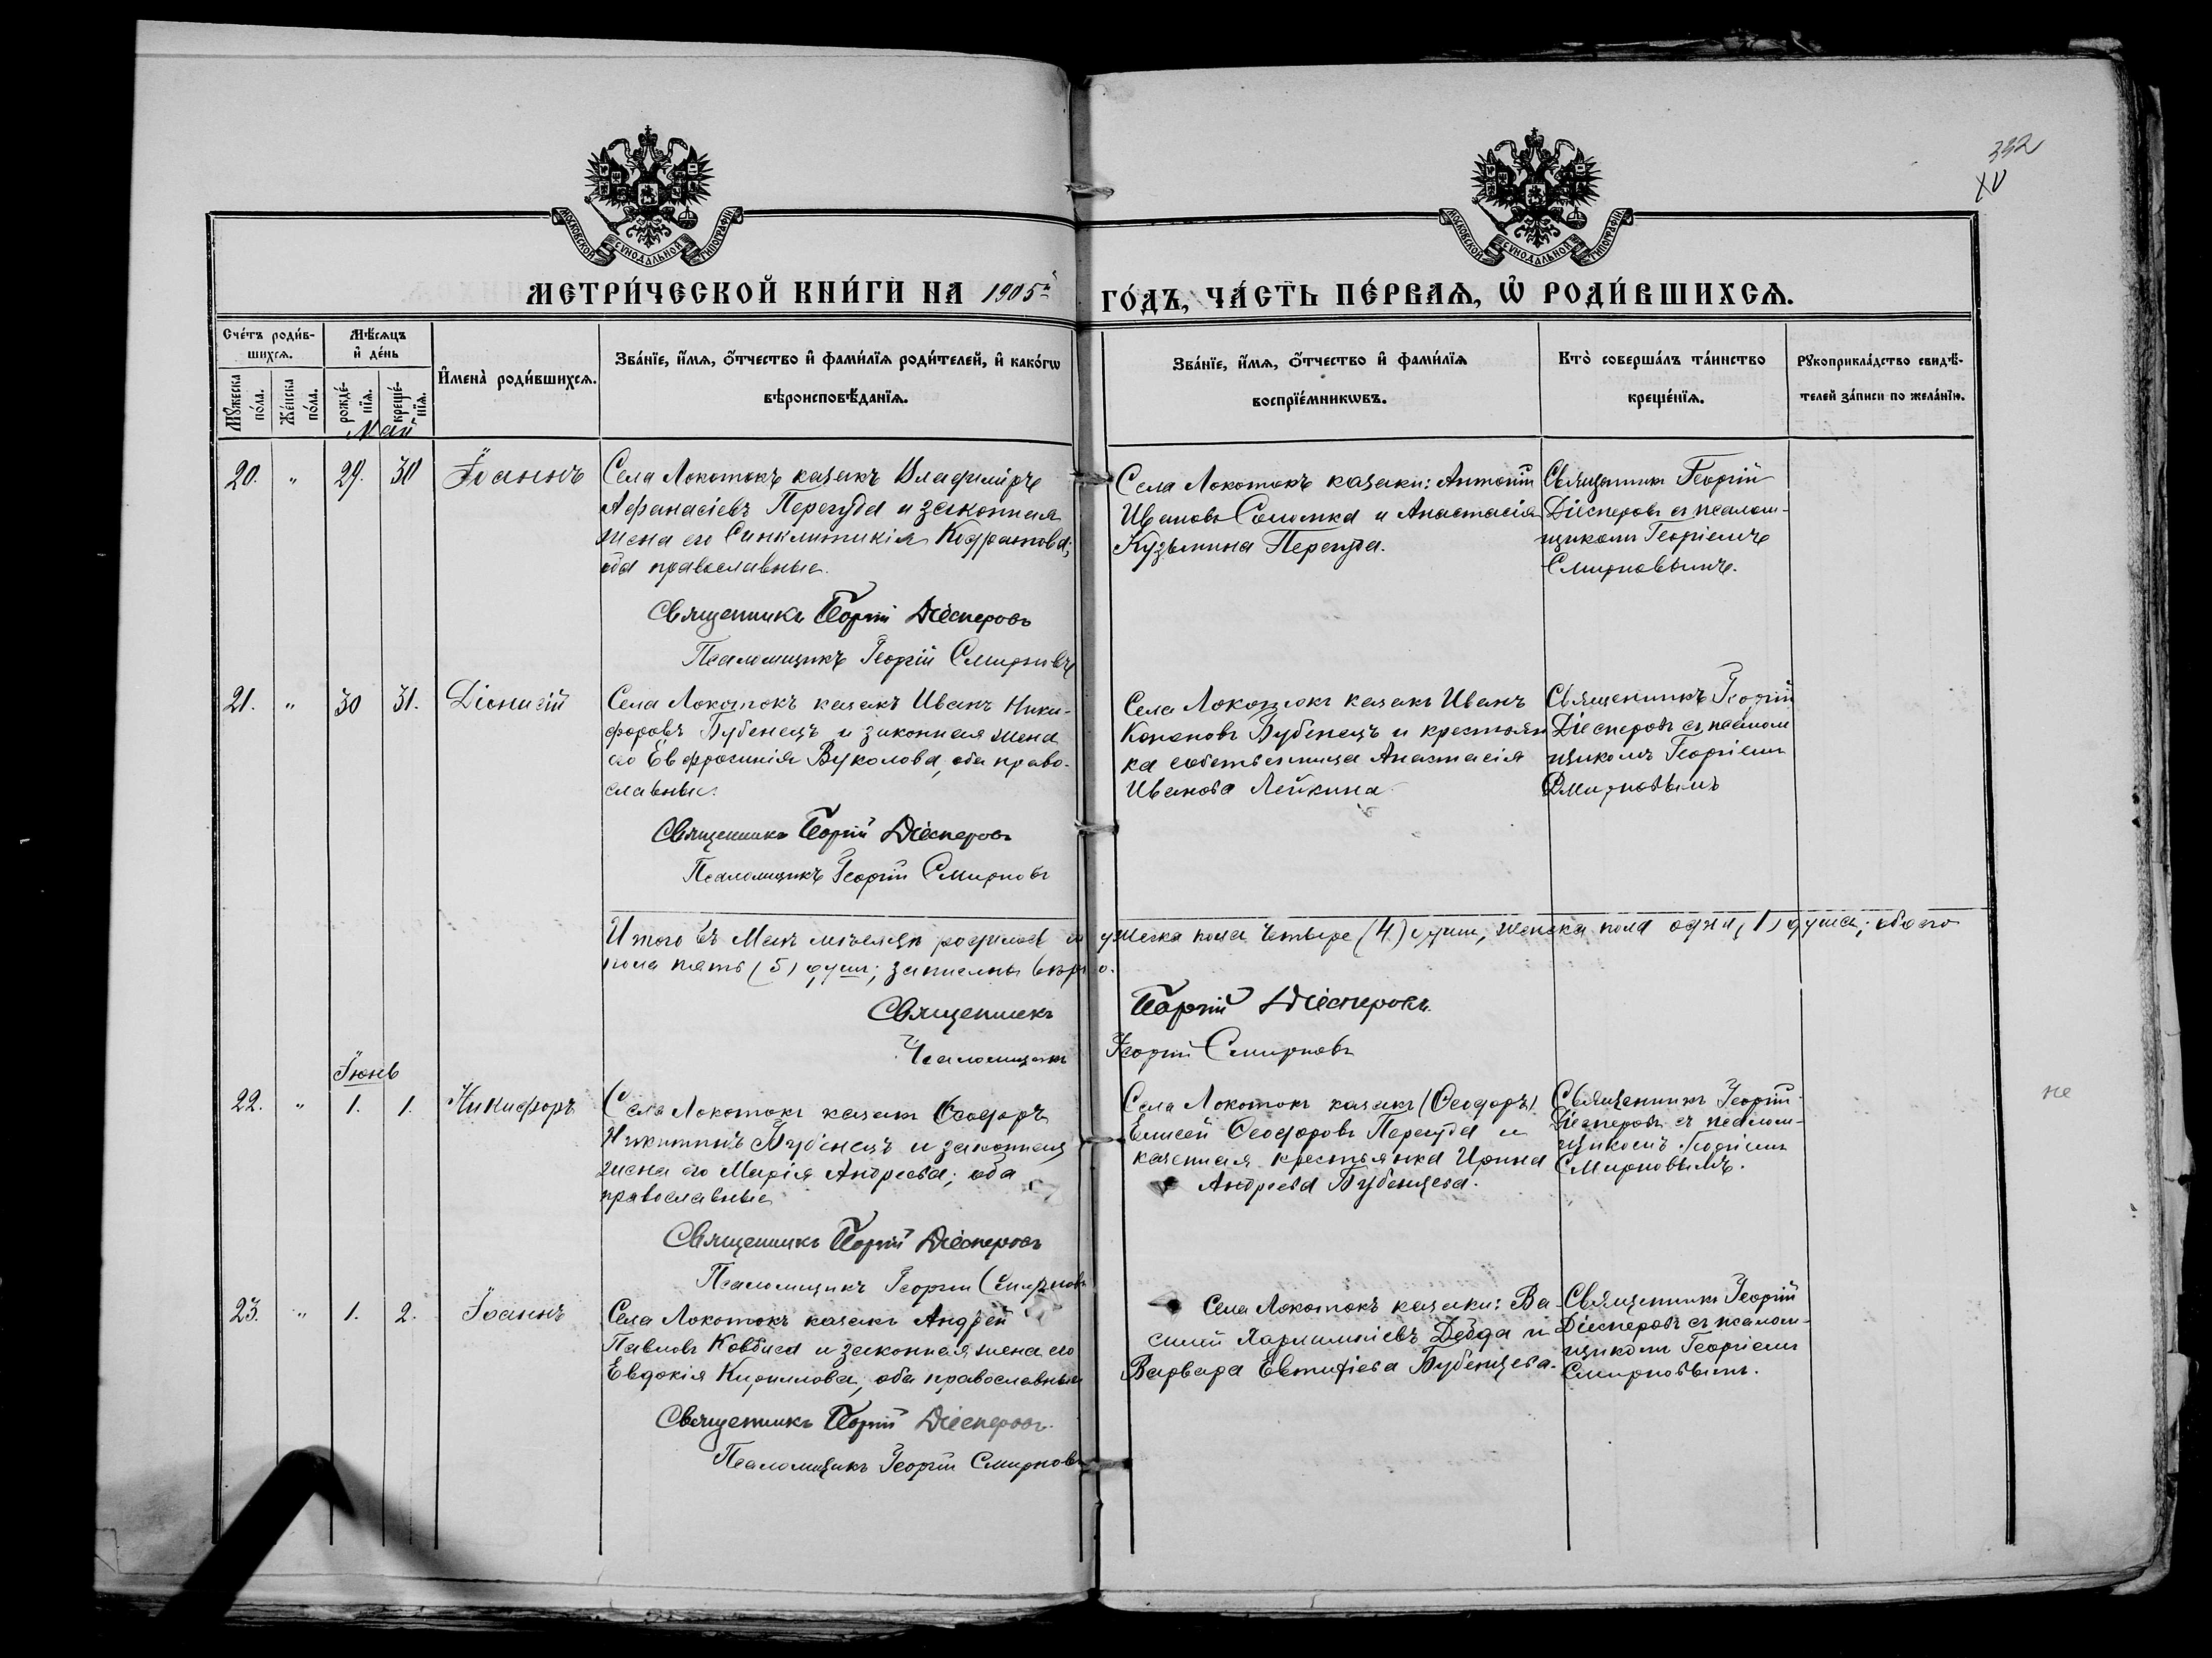 392
XV
МОСКОВСКОЙ СѴНОДАЛЬНОЙ ТИПОГРАФІИ
МОСКОВСКОЙ СѴНОДАЛЬНОЙ ТИПОГРАФІИ
МЕТРИ́ЧЕСКОЙ КНИ́ГИ НА 1905й
ГО́ДЪ, ЧА́СТЬ ПЕ́РВАѦ, Ѡ҆ РОДИ́ВШИХСѦ.
Сче́тъ роди́в-
шихсѧ.
Мꙋ́жеска по́ла.
Же́нска по́ла.
Мѣ́сѧцъ
и҆ де́нь
рожде́-
нїѧ.
креще́-
нїѧ.
И҆мена̀ роди́вшихсѧ.
Зва́нїе, и҆́мѧ, ѻ҆́тчество и҆ фами́лїѧ роди́телей, и҆ како́гѡ
вѣроисповѣ́данїѧ.
Зва́нїе, и҆́мѧ, ѻ҆́тчество и҆ фами́лїѧ
воспрїе́мникѡвъ.
Кто̀ соверша́лъ та́инство
креще́нїѧ.
Рꙋкоприкла́дство свидѣ́-
телей за́писи по жела́нїю.
Май
20. " 29. 30 Іоаннъ
Села Локотокъ казакъ Владиміръ
Афанасіевъ Перегуда и законная
жена его Синклитикія Кодратова;
оба православные.
Священникъ Георгій Діесперовъ
Псаломщикъ Георгій Смирновъ
Села Локотокъ казаки: Антоній
Ивановъ Соломка и Анастасія
Кузьмина Перегуда.
Священникъ Георгій
Діесперовъ съ псалом-
щикомъ Георгіемъ
Смирновымъ.
21. " 30 31. Діонисій
Села Локотокъ казакъ Иванъ Ники-
форовъ Бубенецъ и законная жена
его Евфросинія Вуколова, оба право-
славные.
Священникъ Георгій Діесперовъ
Псаломщикъ Георгій Смирновъ
Села Локотокъ казакъ Иванъ
Кононовъ Бубенецъ и крестьян
ка собственница Анастасія
Иванова Лейкина
Священникъ Георгій
Діесперовъ съ псалом
щикомъ Георгіемъ
Смирновымъ
Итого въ Маѣ мѣсяцѣ родилось мужеска пола четыре (4) души, женска пола одна (1) душа; обоего
пола пять (5) душ; записаны вѣрно.
Священникъ Георгій Діесперовъ.
Псаломщикъ Георгій Смирновъ
Іюнь
22. " 1. 1. Никифоръ
Села Локотокъ казакъ Ѳеодоръ
Никитинъ Бубенецъ и законная
жена его Марія Андреева; оба
православные
Священникъ Георгій Діесперовъ
Псаломщикъ Георгій Смирновъ
Села Локотокъ казакъ (Ѳеодоръ)
Елисей Ѳеодоровъ Перегуда и
казенная крестьянка Ирина
Андреева Бубенцева.
Священникъ Георгій
Діесперовъ съ псалом-
щикомъ Георгіемъ
Смирновымъ.
не
23. " 1. 2. Іоаннъ
Села Локотокъ казакъ Андрей
Павловъ Ковбаса и законная жена его
Евдокія Кириллова, оба православные
Священникъ Георгій Діесперовъ.
Псаломщикъ Георгій Смирновъ
Села Локотокъ казаки: Ва-
силій Харлампіевъ Дейда и
Варвара Евтифіева Бубенцева.
Священникъ Георгій
Діесперовъ съ псалом-
щикомъ Георгіемъ
Смирновымъ.